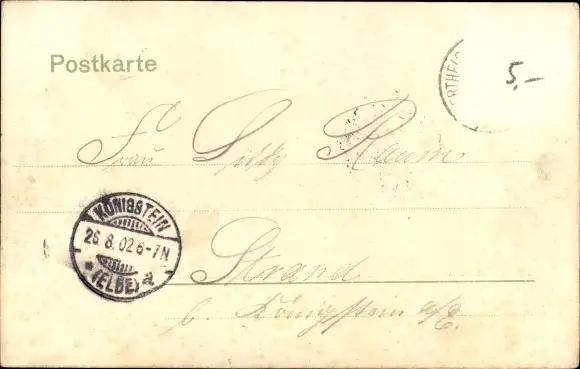 Postkarte
ERTHEI
5,-
Frau Raum
KÖNIGSTEIN
26.8.02.6-7N
* (ELBE) a
Strand
b. Königstein a/E.